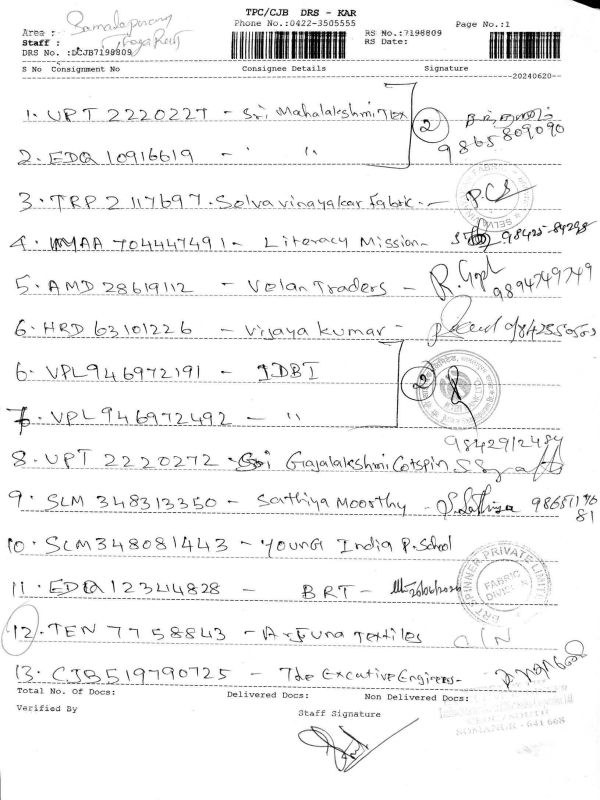 TPC/CJB DRS - KAR
Phone No.:0422-3505555 Page No.:1
Area : Samalapuram
Staff : Thagaraj
RS No.:7198809
RS Date:
DRS No. :DCJB7198809
S No Consignment No Consignee Details Signature
20240620
1. UPT 2220227 - Sri Mahalakshmi Tex 2
9865809090
2. EDQ 10916619 - " "
3. TRP 2117697. Selva vinayakar Fabric - P.C.S
4. MAA 704447491 - Literacy Mission - 98425-84298
5. AMD 28619112 - Velan Traders - R. Gopl
9894749749
6. HRD 63101226 - Vijaya kumar -
6. VPL946972191 - IDBI 2
7. VPL946972492 - "
9842912484
8. UPT 2220272 - Sri Gajalakshmi Cotspin
9. SLM 348313350 - Sathiya Moorthy - S. Sathiya
81
10. SLM348081443 - Young India P. School
11. EDQ12344828 - BRT -
FABRIC DIVISION
BRT SPINNER PRIVATE LIMITED
12. TEN 7758843 - Arjuna Textiles C/N
13. CJB519790725 - The Excative Engineers -
Total No. Of Docs: Delivered Docs: Non Delivered Docs:
Verified By Staff Signature
SOMANUR - 641 668